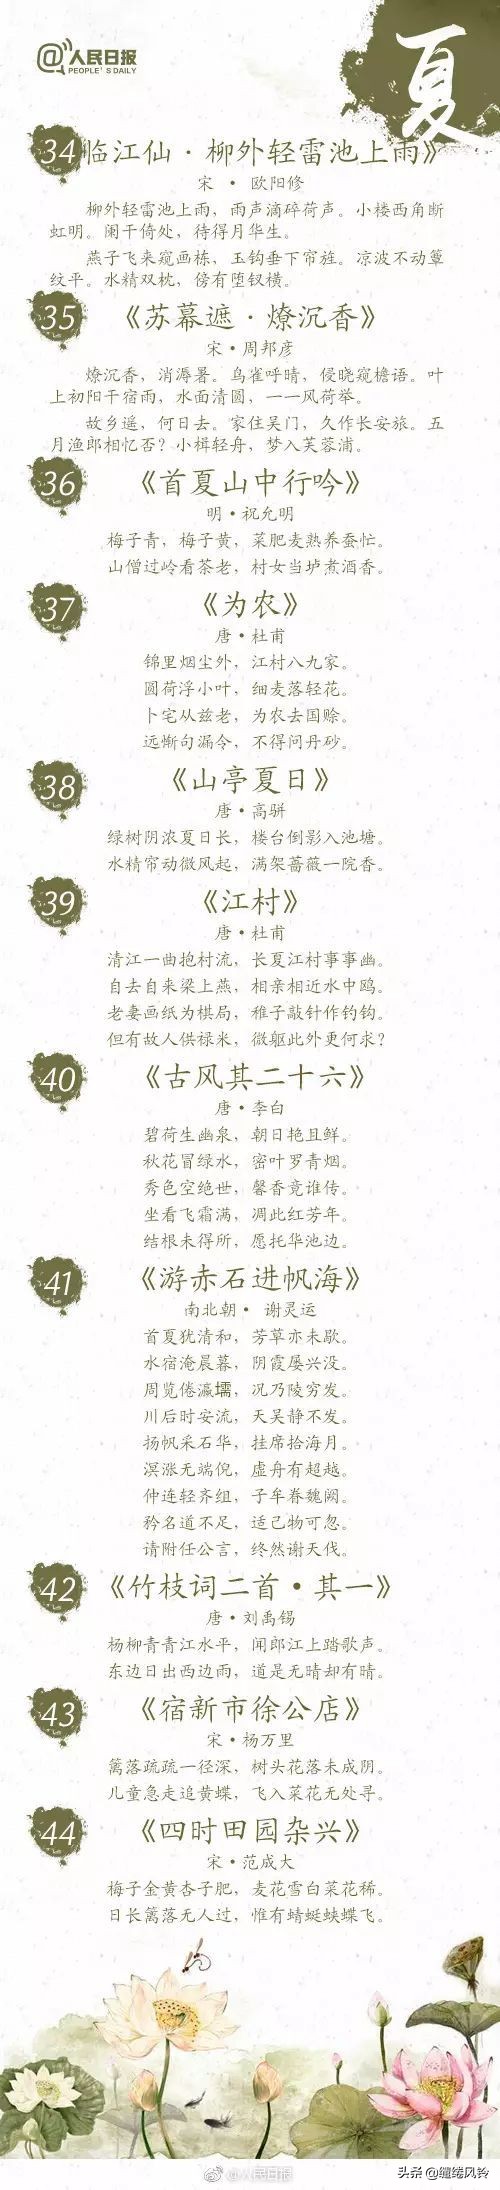 @人民日报
PEOPLE'S DAILY
夏
34 临江仙·柳外轻雷池上雨》
宋 · 欧阳修
柳外轻雷池上雨，雨声滴碎荷声。小楼西角断
虹明。阑干倚处，待得月华生。
燕子飞来窥画栋，玉钩垂下帘旌。凉波不动簟
纹平。水精双枕，傍有堕钗横。
35 《苏幕遮·燎沉香》
宋·周邦彦
燎沉香，消溽暑。鸟雀呼晴，侵晓窥檐语。叶
上初阳干宿雨，水面清圆，一一风荷举。
故乡遥，何日去。家住吴门，久作长安旅。五
月渔郎相忆否？小楫轻舟，梦入芙蓉浦。
36 《首夏山中行吟》
明·祝允明
梅子青，梅子黄，菜肥麦熟养蚕忙。
山僧过岭看茶老，村女当垆煮酒香。
37 《为农》
唐·杜甫
锦里烟尘外，江村八九家。
圆荷浮小叶，细麦落轻花。
卜宅从兹老，为农去国赊。
远惭句漏令，不得问丹砂。
38 《山亭夏日》
唐·高骈
绿树阴浓夏日长，楼台倒影入池塘。
水精帘动微风起，满架蔷薇一院香。
39 《江村》
唐·杜甫
清江一曲抱村流，长夏江村事事幽。
自去自来梁上燕，相亲相近水中鸥。
老妻画纸为棋局，稚子敲针作钓钩。
但有故人供禄米，微躯此外更何求？
40 《古风其二十六》
唐·李白
碧荷生幽泉，朝日艳且鲜。
秋花冒绿水，密叶罗青烟。
秀色空绝世，馨香竟谁传。
坐看飞霜满，凋此红芳年。
结根未得所，愿托华池边。
41 《游赤石进帆海》
南北朝· 谢灵运
首夏犹清和，芳草亦未歇。
水宿淹晨暮，阴霞屡兴没。
周览倦瀛壖，况乃陵穷发。
川后时安流，天吴静不发。
扬帆采石华，挂席拾海月。
溟涨无端倪，虚舟有超越。
仲连轻齐组，子牟眷魏阙。
矜名道不足，适己物可忽。
请附任公言，终然谢天伐。
42 《竹枝词二首·其一》
唐·刘禹锡
杨柳青青江水平，闻郎江上踏歌声。
东边日出西边雨，道是无晴却有晴。
43 《宿新市徐公店》
宋·杨万里
篱落疏疏一径深，树头花落未成阴。
儿童急走追黄蝶，飞入菜花无处寻。
44 《四时田园杂兴》
宋·范成大
梅子金黄杏子肥，麦花雪白菜花稀。
日长篱落无人过，惟有蜻蜓蛱蝶飞。
@人民日报
头条 @缱绻风铃